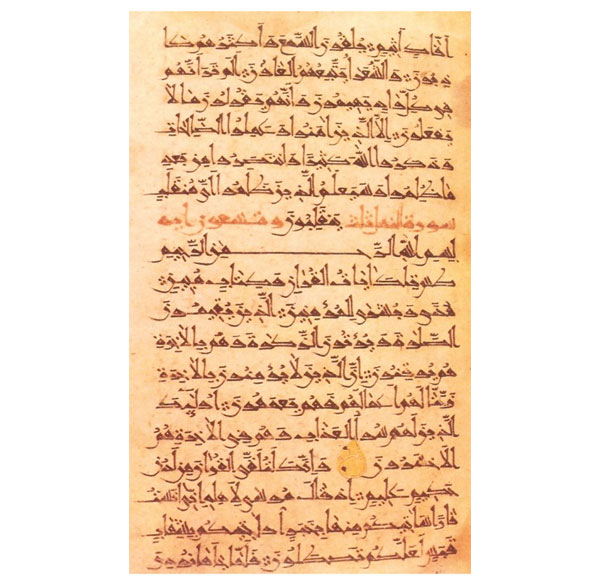 أفاك أثيم يلقون السمع وأكثرهم كا
ذبون والشعراء يتبعهم الغاون ألم تر أنهم
في كل واد يهيمون وأنهم يقولون ما لا
يفعلون إلا الذين آمنوا وعملوا الصالحات
وذكروا الله كثيرا وانتصروا من بعد
ما ظلموا وسيعلم الذين ظلموا أي منقلب
سورة النمل ينقلبون وتسعون آية
بسم الله الرحمن الرحيم
طس تلك آيات القرآن وكتاب مبين
هدى وبشرى للمؤمنين الذين يقيمون
الصلوة ويؤتون الزكوة وهم بالآخرة
هم يوقنون إن الذين لا يؤمنون بالآخرة
زينا لهم أعمالهم فهم يعمهون أولئك
الذين لهم سوء العذاب وهم في الآخرة هم
الأخسرون وإنك لتلقى القرآن من لدن
حكيم عليم إذ قال موسى لأهله إني آنست
نارا سآتيكم منها بخبر أو آتيكم بشهاب
قبس لعلكم تصطلون فلما جاءها نودي